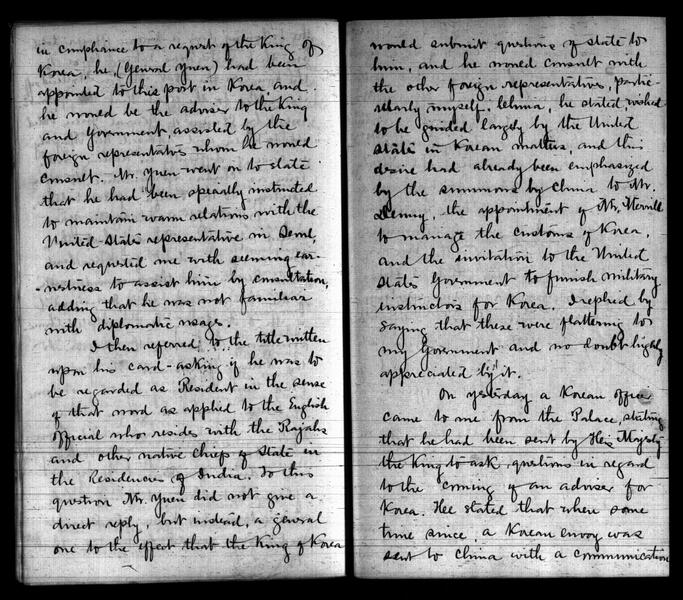 in compliance to a request of the King of
Korea, he, (General Yuen) had been
appointed to this post in Korea, and
he would be the adviser to the King
and Government, assisted by the
foreign representatives whom he would
consult. Mr. Yuen went on to state
that he had been specially instructed
to maintain warm relations with the
United States representative in Seoul,
and requested me with seeming ear-
nestness to assist him by consultation,
adding that he was not familiar
with diplomatic usages.
I then referred to the title written
upon his card - asking if he was to
be regarded as Resident in the sense
of that word as applied to the English
official who resides with the Rajahs
and other native Chiefs of State in
the Residencies of India. To this
question Mr. Yuen did not give a
direct reply, but instead, a general
one to the effect that the King of Korea
would submit questions of state to
him, and he would consult with
the other foreign representatives, partic-
ularly myself. China, he stated, wished
to be guided largely by the United
States in Korean matters, and this
desire had already been emphasized
by the summons by China to Mr.
Denny, the appointment of Mr. Merrill
to manage the customs of Korea,
and the invitation to the United
States Government to furnish military
instructors for Korea. I replied by
saying that these were flattering to
my Government and no doubt highly
appreciated by it.
On yesterday a Korean officer
came to me from the Palace, stating
that he had been sent by His Majesty
the King to ask questions in regard
to the coming of an adviser for
Korea. He stated that when some
time since, a Korean envoy was
sent to China with a communication